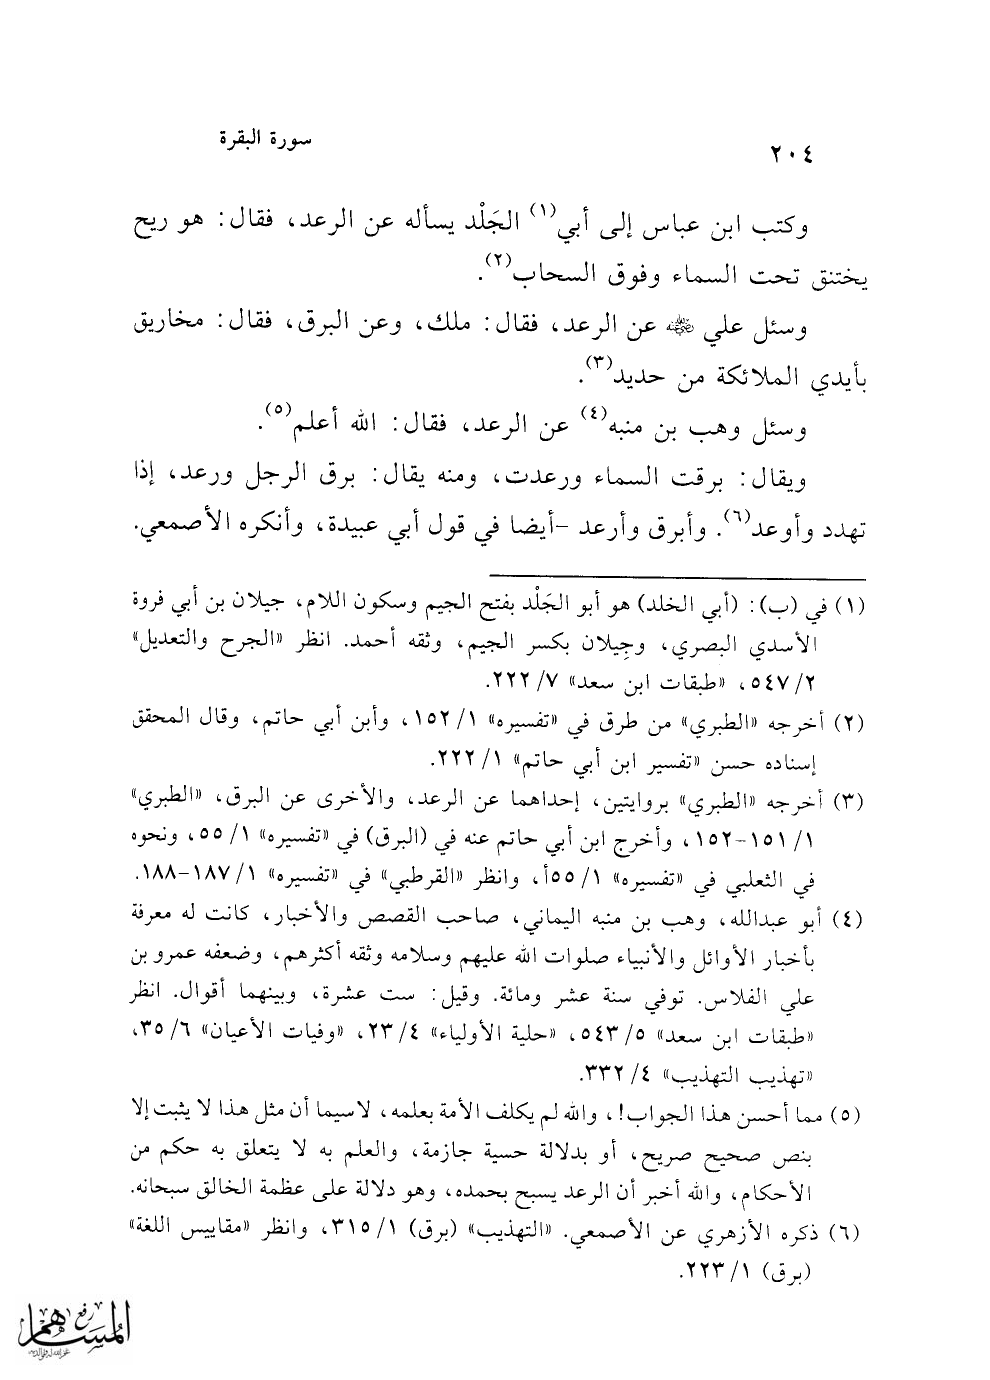 ٢٠٤ سورة البقرة
وكتب ابن عباس إلى أبي(١) الجَلْد يسأله عن الرعد، فقال: هو ريح
يختنق تحت السماء وفوق السحاب(٢).
وسئل علي ﵁ عن الرعد، فقال: ملك، وعن البرق، فقال: مخاريق
بأيدي الملائكة من حديد(٣).
وسئل وهب بن منبه(٤) عن الرعد، فقال: الله أعلم(٥).
ويقال: برقت السماء ورعدت، ومنه يقال: برق الرجل ورعد، إذا
تهدد وأوعد(٦). وأبرق وأرعد -أيضا في قول أبي عبيدة، وأنكره الأصمعي.
(١) في (ب): (أبي الخلد) هو أبو الجَلْد بفتح الجيم وسكون اللام، جيلان بن أبي فروة
الأسدي البصري، وجِيلان بكسر الجيم، وثقه أحمد. انظر «الجرح والتعديل»
٢/ ٥٤٧، «طبقات ابن سعد» ٧/ ٢٢٢.
(٢) أخرجه «الطبري» من طرق في «تفسيره» ١/ ١٥٢، وأبن أبي حاتم، وقال المحقق
إسناده حسن «تفسير ابن أبي حاتم» ١/ ٢٢٢.
(٣) أخرجه «الطبري» بروايتين، إحداهما عن الرعد، والأخرى عن البرق، «الطبري»
١/ ١٥١-١٥٢، وأخرج ابن أبي حاتم عنه في (البرق) في «تفسيره» ١/ ٥٥، ونحوه
في الثعلبي في «تفسيره» ١/ ٥٥أ، وانظر «القرطبي» في «تفسيره» ١/ ١٨٧-١٨٨.
(٤) أبو عبدالله، وهب بن منبه اليماني، صاحب القصص والأخبار، كانت له معرفة
بأخبار الأوائل والأنبياء صلوات الله عليهم وسلامه وثقه أكثرهم، وضعفه عمرو بن
علي الفلاس. توفي سنة عشر ومائة. وقيل: ست عشرة، وبينهما أقوال. انظر
«طبقات ابن سعد» ٥/ ٥٤٣، «حلية الأولياء» ٤/ ٢٣، «وفيات الأعيان» ٦/ ٣٥،
«تهذيب التهذيب» ٤/ ٣٣٢.
(٥) مما أحسن هذا الجواب!، والله لم يكلف الأمة بعلمه، لاسيما أن مثل هذا لا يثبت إلا
بنص صحيح صريح، أو بدلالة حسية جازمة، والعلم به لا يتعلق به حكم من
الأحكام، والله أخبر أن الرعد يسبح بحمده، وهو دلالة على عظمة الخالق سبحانه.
(٦) ذكره الأزهري عن الأصمعي. «التهذيب» (برق) ١/ ٣١٥، وانظر «مقاييس اللغة»
(برق) ١/ ٢٢٣.
رفع
المساهم